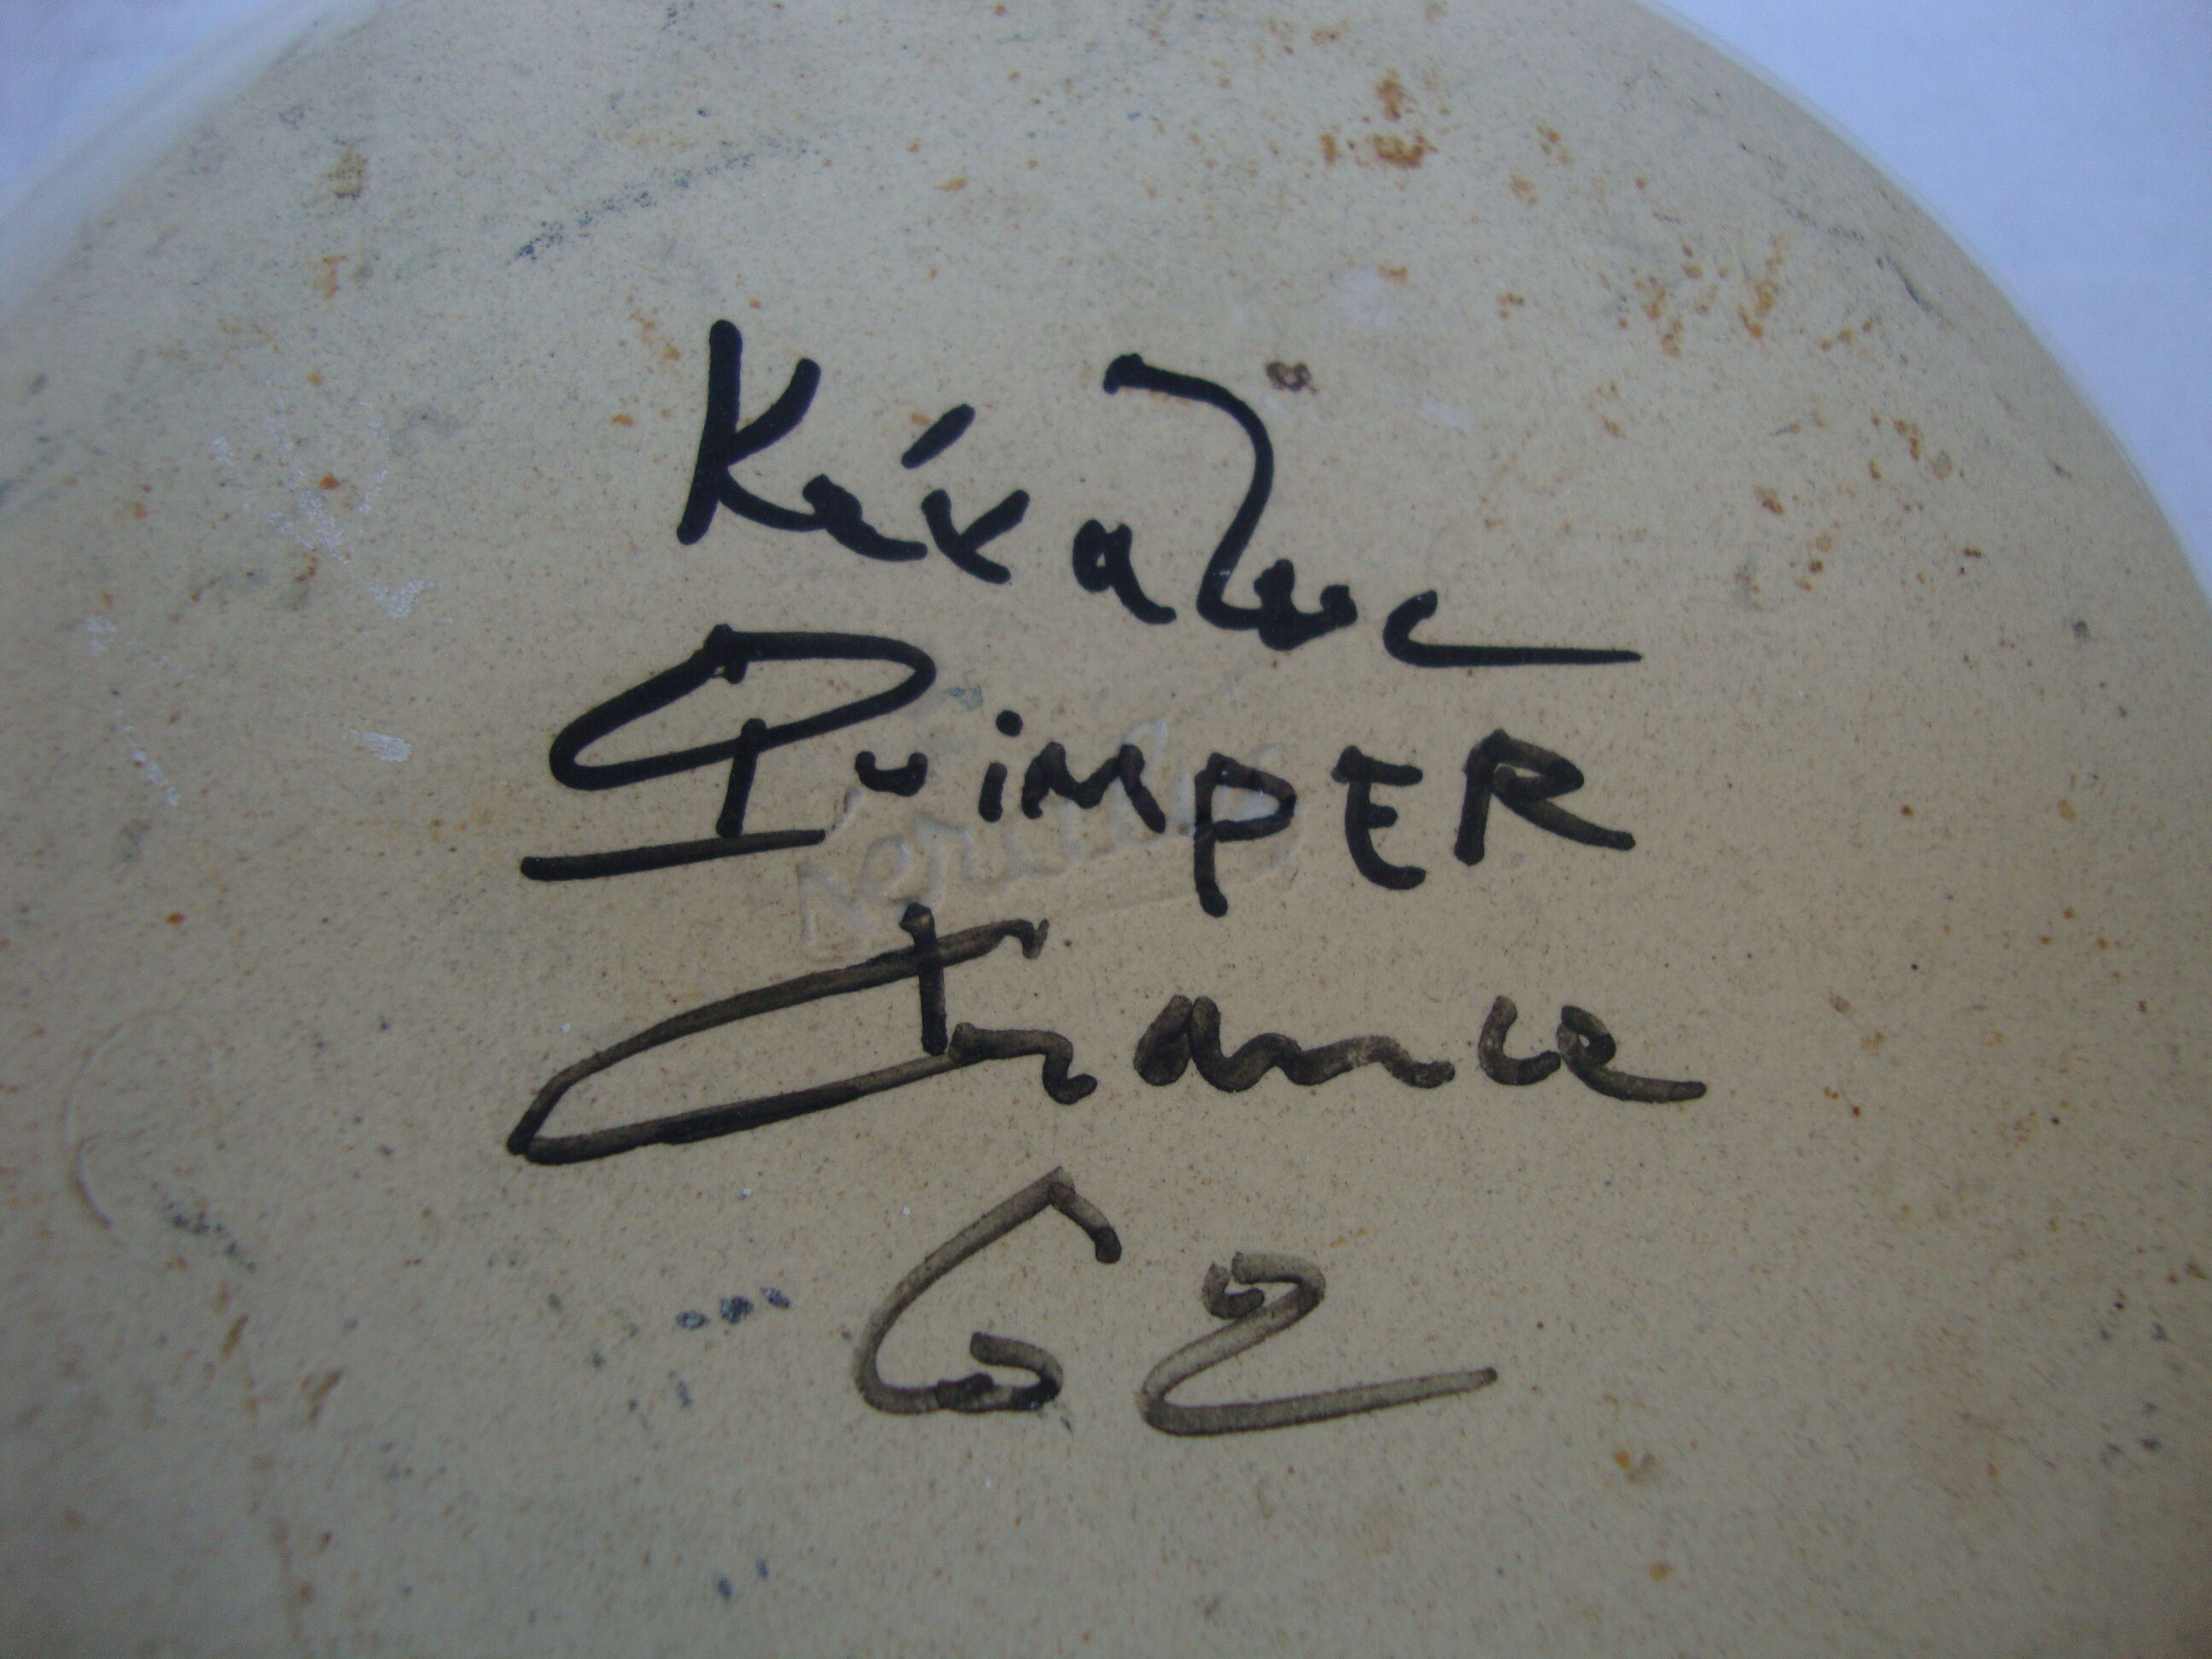 Kéraluc
QuimPER
France
62